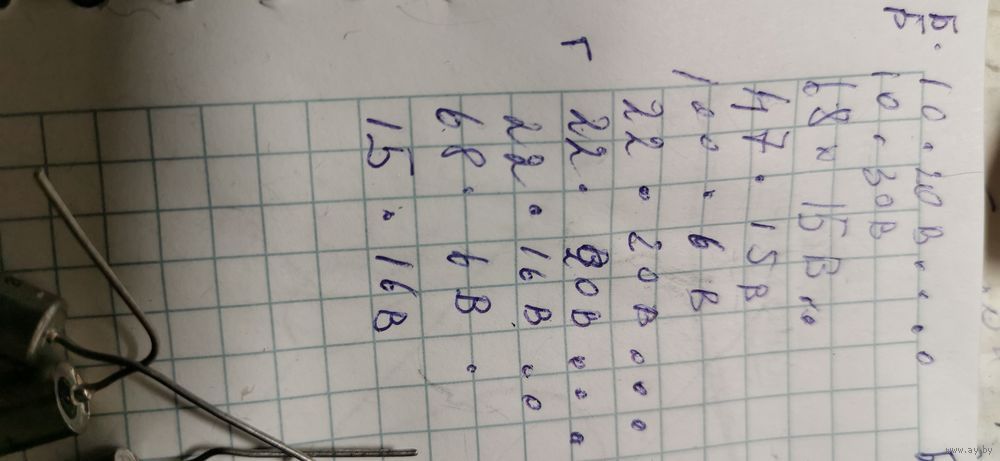 Б.
Б
10 . 20 В . . . .
10 . 30 В
68 х 15 В ..
47 . 15 В
100 . 6 В
22 . 20 В . . .
Г
22 . 20 В . . .
22 . 16 В . .
68 . 6 В .
15 . 16 В
www.ay.by